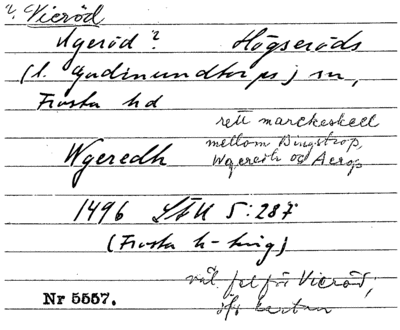 ? Vieröd
Ugeröd? Högseröds
(l. Gudmundtorps) sn,
Frosta hd
rett marckeskell
mellom Bingstrop,
Wgeredh Wgeredh oc Aerop
1496 LÆU 5:287
(Frosta h-ting)
väl fel för Vieröd,
Nr 5557. jfr kartan